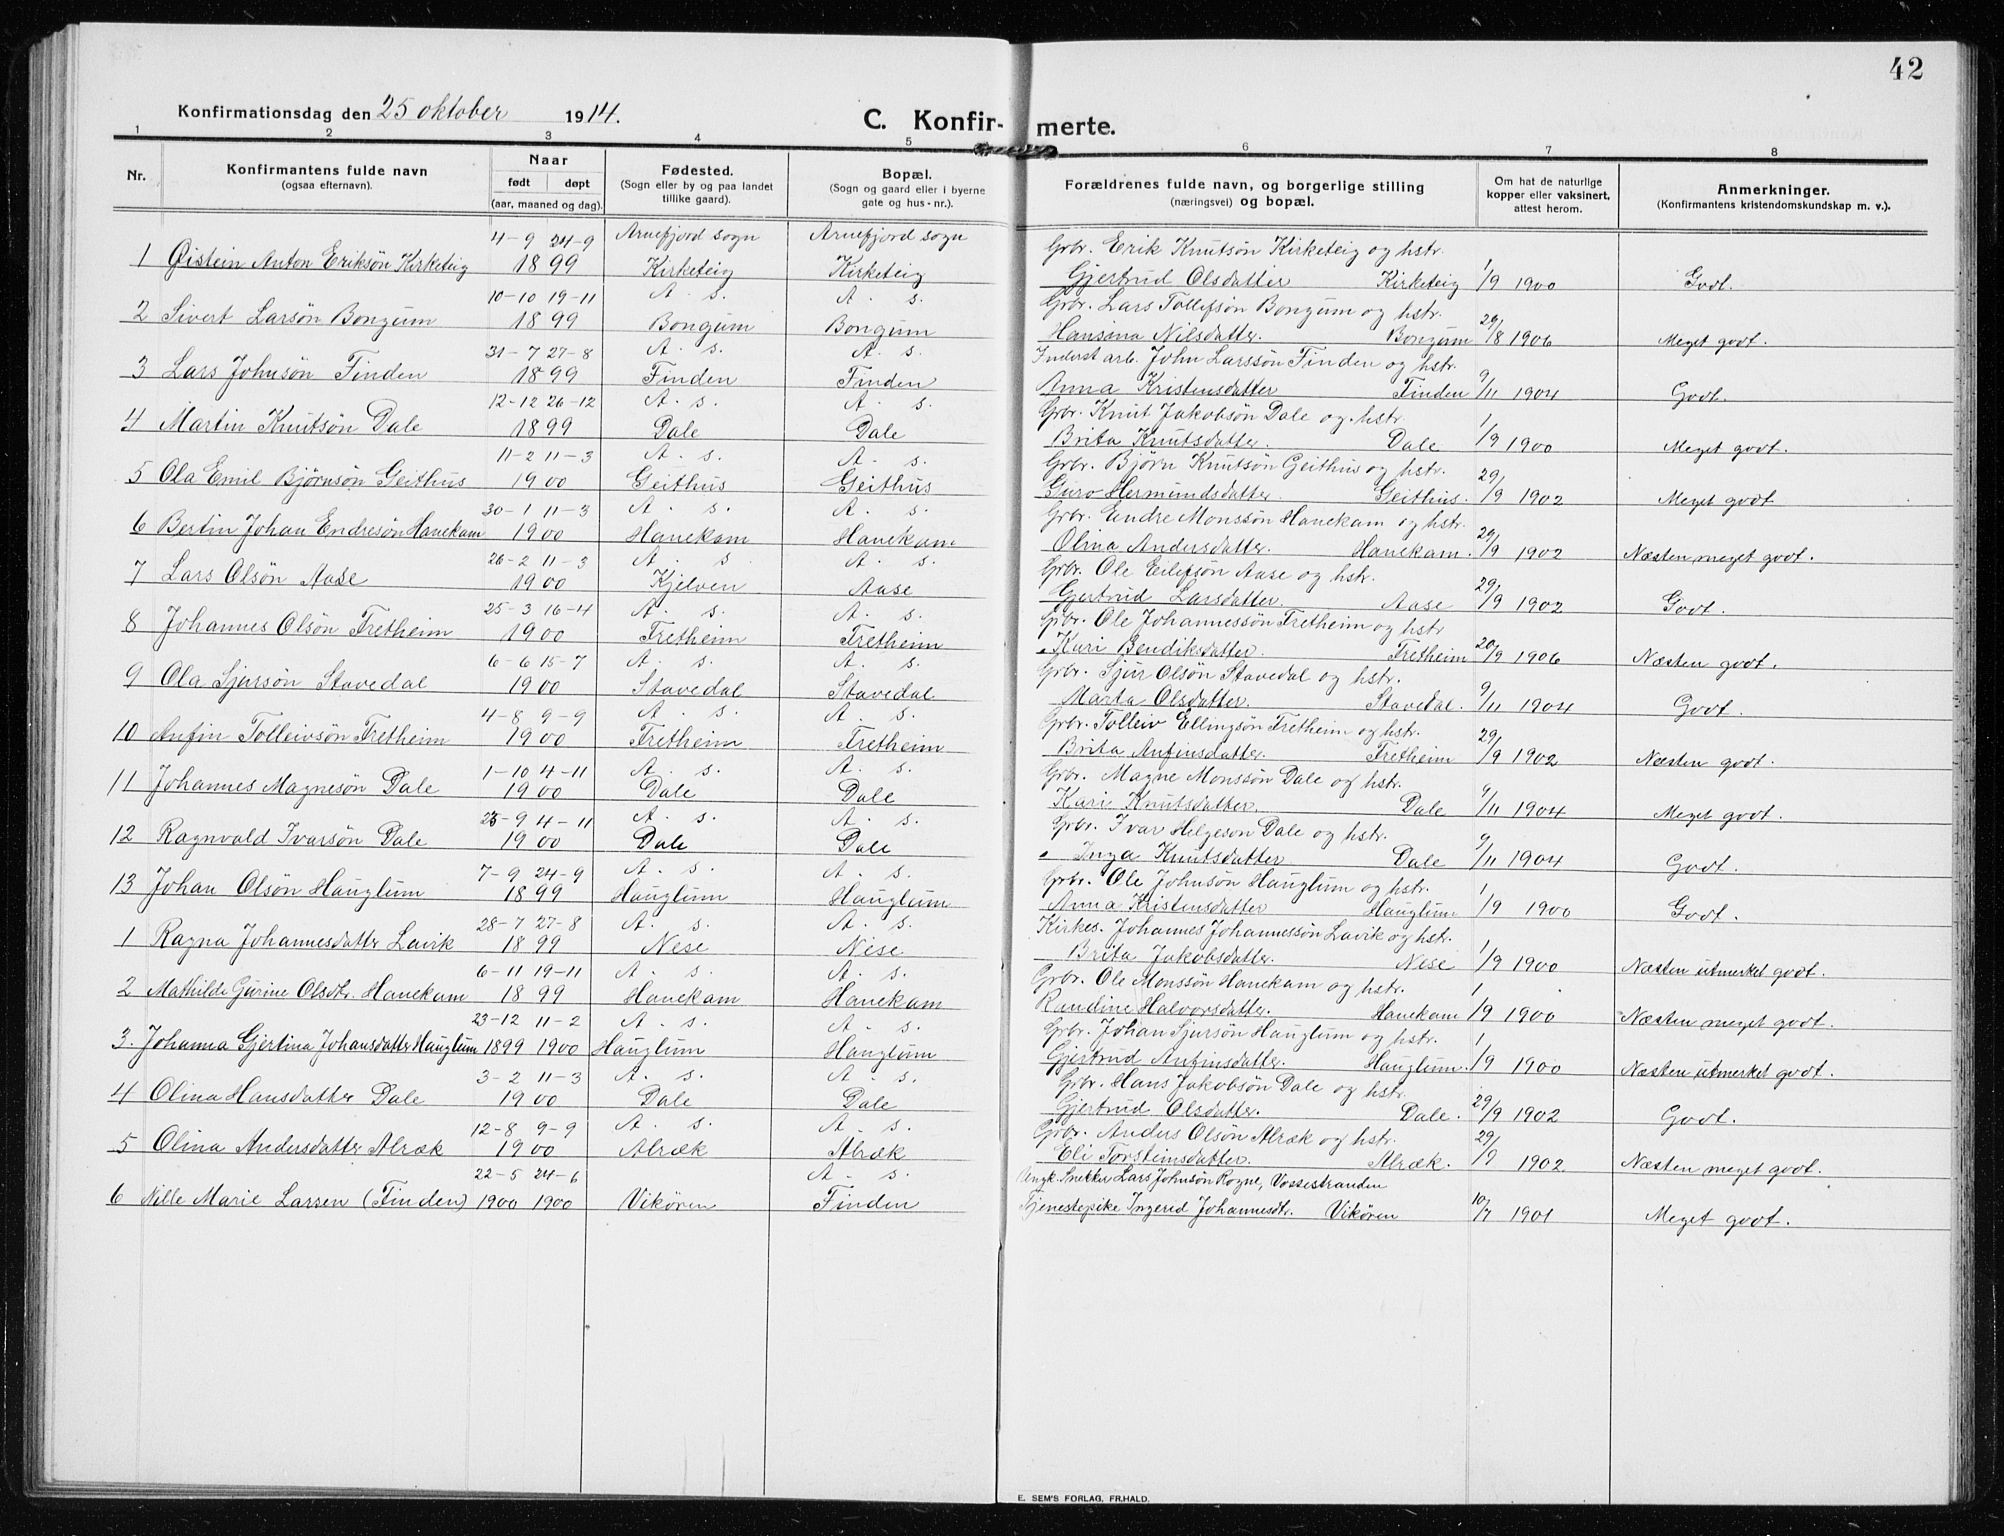 42
Konfirmationsdag den 25 oktober 1914.
C. Konfir-merte.
1 2 3 4 5 6 7 8
Nr. Konfirmantens fulde navn (ogsaa efternavn). Naar født døpt (aar, maaned og dag). Fødested. (Sogn eller by og paa landet tillike gaard). Bopæl. (Sogn og gaard eller i byerne gate og hus-nr.). Forældrenes fulde navn, og borgerlige stilling (næringsvei) og bopæl. Om hat de naturlige kopper eller vaksinert, attest herom. Anmerkninger. (Konfirmantens kristendomskundskap m. v.).
4-9 24-9 Arnefjord sogn Arnefjord sogn Grbr. Erik Knutsøn Kirketeig og hstr.
1 Øistein Anton Eriksøn Kirketeig 1899 Kirketeig Kirketeig Gjertrud Olsdatter Kirketeig 1/9 1900 Godt.
10-10 19-11 A. s. A. s. Grbr. Lars Tollefsøn Bongum og hstr.
2 Sivert Larsøn Bongum 1899 Bongum Bongum Hansina Nilsdatter. Bongum 29/8 1906 Meget godt.
31-7 27-8 A. s. A. s. Inderst arb. John Larssøn Finden og hstr.
3 Lars Johnsøn Finden 1899 Finden Finden Anna Kristensdatter Finden 9/11 1904 Godt.
12-12 26-12 A. s. A. s. Grbr. Knut Jakobsøn Dale og hstr.
4 Martin Knutsøn Dale 1899 Dale Dale Brita Knutsdatter. Dale 1/9 1900 Meget godt.
11-2 11-3 A. s. A. s. Grbr. Bjørn Knutsøn Geithus og hstr.
5 Ola Emil Bjørnsøn Geithus 1900 Geithus Geithus Guro Hermundsdatter. Geithus. 29/9 1902 Meget godt
30-1 11-3 A. s. A. s. Grbr. Endre Monssøn Hanekam og hstr.
6 Bertin Johan Endresøn Hanekam 1900 Hanekam Hanekam Olina Andersdatter. Hanekam. 29/9 1902 Næsten meget godt.
26-2 11-3 A. s A. s. Grbr. Ole Eilifsøn Aase og hstr.
7 Lars Olsøn Aase 1900 Kjelven Aase Gjertrud Larsdatter. Aase 29/9 1902 Godt.
25-3 16-4 A. s. A. s. Grbr. Ole Johannessøn Fretheim og hstr
8 Johannes Olsøn Fretheim 1900 Fretheim Fretheim Kari Bendiksdatter. Fretheim 20/9 1906 Næsten godt.
6-6 15-7 A. s. A. s. Grbr. Sjur Olsøn Stavedal og hstr.
9 Ola Sjursøn Stavedal 1900 Stavedal Stavedal Marta Olsdatter. Stavedal. 9/11 1904 Godt.
4-8 9-9 A. s. A. s. Grbr. Tolleiv Ellingsøn Fretheim og hstr.
10 Anfin Tolleivsøn Fretheim 1900 Fretheim Fretheim Brita Anfinsdatter. Fretheim 29/9 1902 Næsten godt.
1-10 4-11 A. s. A. s. Grbr. Magne Monssøn Dale og hstr.
11 Johannes Magnesøn Dale 1900 Dale Dale Kari Knutsdatter Dale 9/11 1904 Meget godt.
25-9 4-11 A. s. A. s. Grbr. Ivar Helgeson Dale og hstr.
12 Ragnvald Ivarsøn Dale 1900 Dale Dale Inga Knutsdatter Dale 9/11 1904 Godt.
7-9 24-9 A. s. A. s. Grbr. Ole Johnsøn Hauglum og hstr.
13 Johan Olsøn Hauglum 1899 Hauglum Hauglum Anna Kristensdatter Hauglum 1/9 1900 Godt.
28-7 27-8 A. s. A. s. Kirkes. Johannes Johannessøn Lavik og hstr.
1 Ragna Johannesdatter Lavik 1899 Nese Nese Brita Jakobsdatter. Nese 1/9 1900 Næsten utmerket godt.
6-11 19-11 A. s. A. s. Grbr. Ole Monssøn Hanekam og hstr.
2 Mathilde Gurine Olsdtr. Hanekam 1899 Hanekam Hanekam Randine Halvorsdatter. Hanekam 1/9 1900 Næsten meget godt.
23-12 11-2 A. s. A. s. Grbr. Johan Sjursøn Hauglum og hstr.
3. Johanna Gjertina Johansdatter Hauglum 1899 1900 Hauglum Hauglum Gjertrud Anfinsdatter. Hauglum. 1/9 1900 Næsten utmerket godt.
3-2 11-3 A. s. A. s. Grbr. Hans Jakobsøn Dale og hstr.
4 Olina Hansdatter Dale 1900 Dale Dale Gjertrud Olsdatter. Dale. 29/9 1902 Godt.
12-8 9-9 A. s. A. s. Grbr. Anders Olsøn Alræk og hstr.
5 Olina Andersdatter Alræk 1900 Alræk Alræk Eli Torsteinsdatter. Alræk. 29/9 1902 Næsten meget godt.
22-5 24-6 A. s. Ungk. Snekker Lars Johnsøn Rogne, Vossestranden
6 Nille Marie Larsen (Finden) 1900 1900 Vikören Finden Tjenestepike Ingerid Johannesdtr. Vikören 10/7 1901 Meget godt.
E. SEM'S FORLAG, FR.HALD.